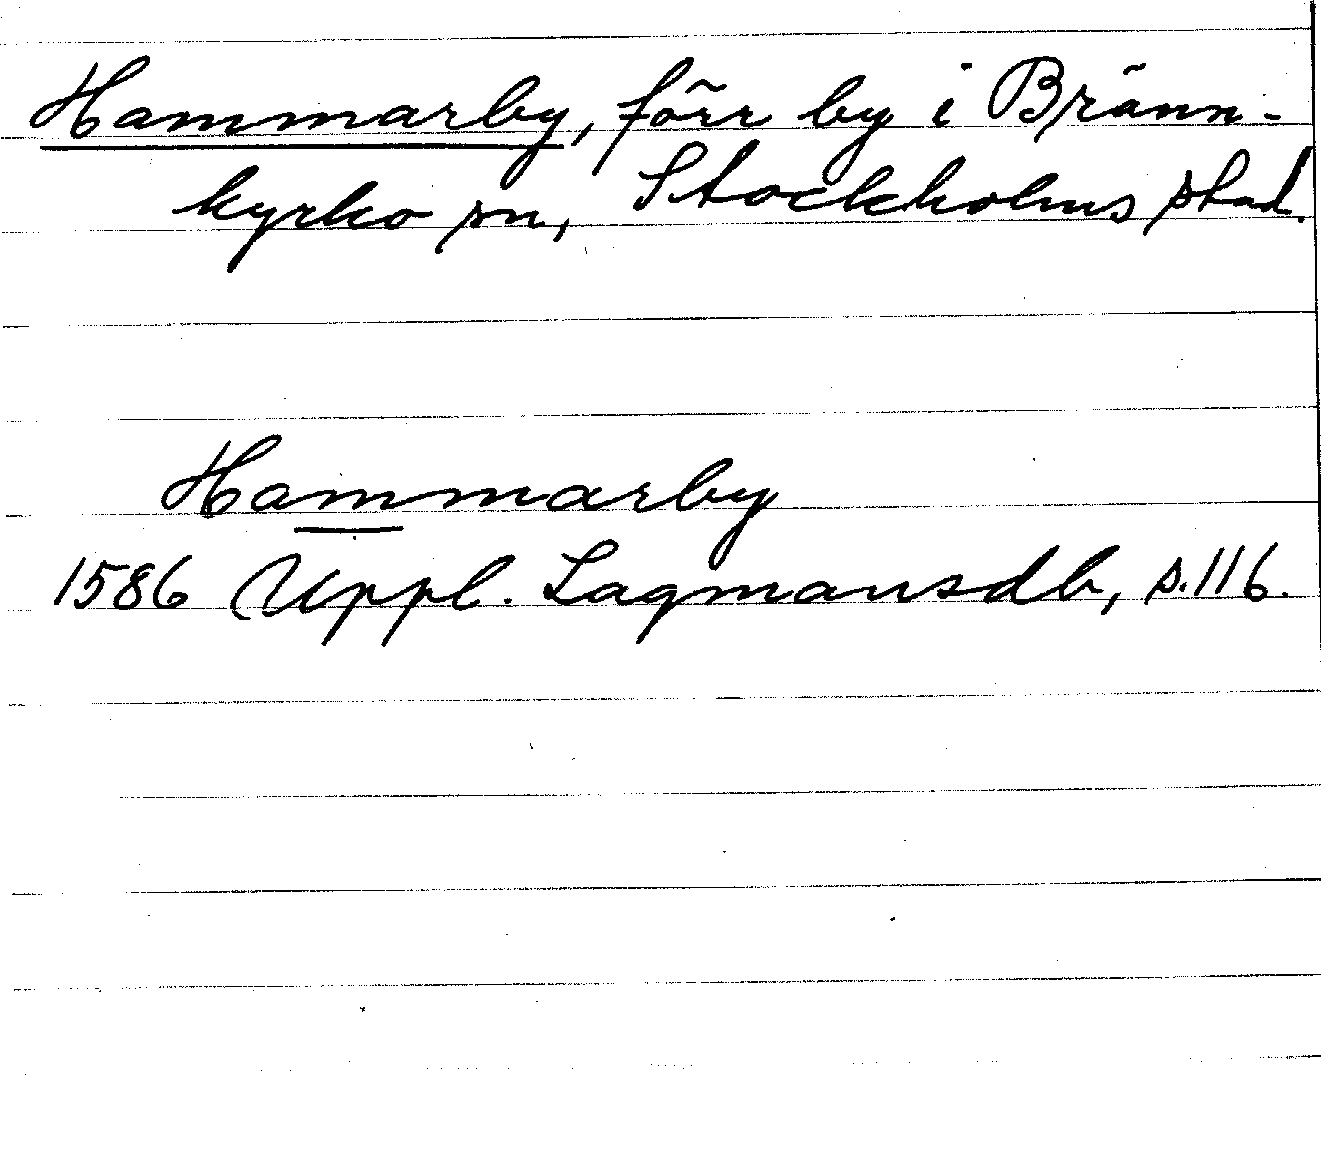 Hammarby, förr by i Bränn-
kyrko sn, Stockholms stad.
Hammarby
1586 Uppl. Lagmansdb, s.116.